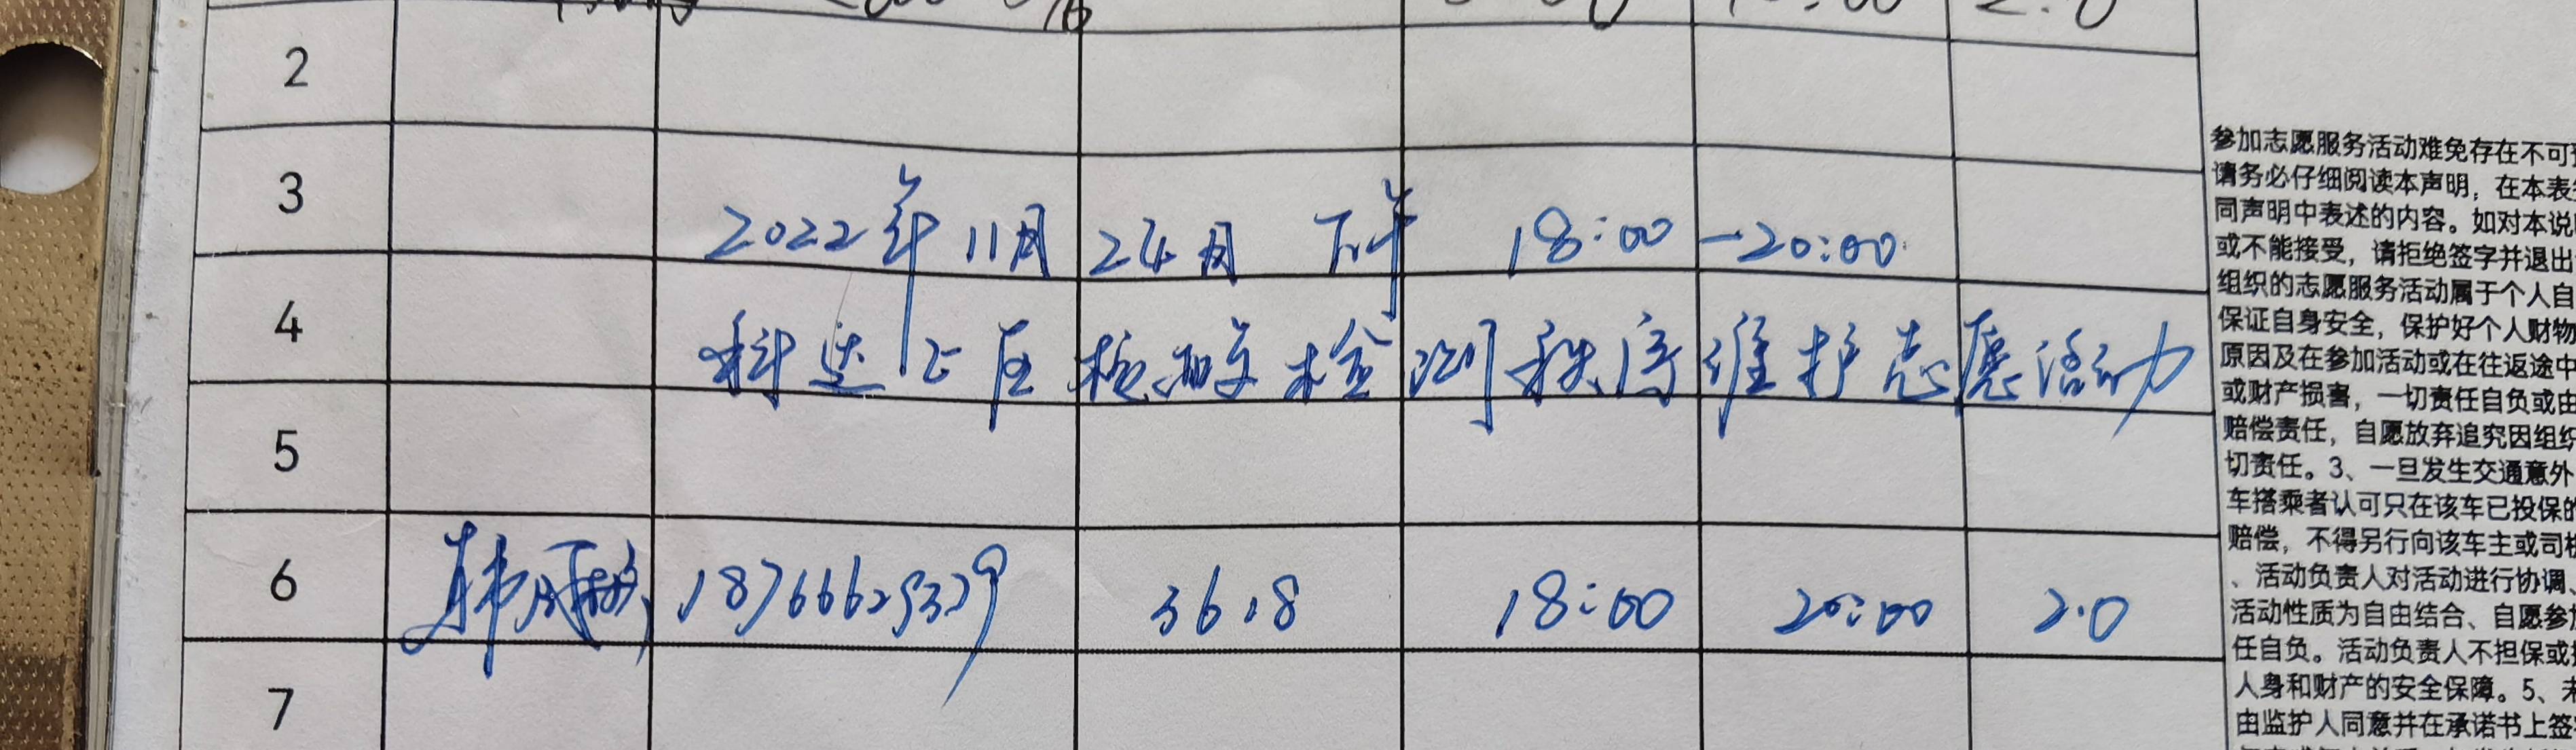 2
3
2022年11月24日 下午 18:00-20:00
4
科达小区核酸检测秩序维护志愿活动
5
6 韩 18766625329 36.8 18:00 20:00 2.0
7
参加志愿服务活动难免存在不可
请务必仔细阅读本声明，在本表
同声明中表述的内容。如对本说
或不能接受，请拒绝签字并退出
组织的志愿服务活动属于个人自
保证自身安全，保护好个人财物
原因及在参加活动或在往返途中
或财产损害，一切责任自负或由
赔偿责任，自愿放弃追究因组织
切责任。3、一旦发生交通意外
车搭乘者认可只在该车已投保的
赔偿，不得另行向该车主或司机
、活动负责人对活动进行协调、
活动性质为自由结合、自愿参加
任自负。活动负责人不担保或
人身和财产的安全保障。5、未
由监护人同意并在承诺书上签